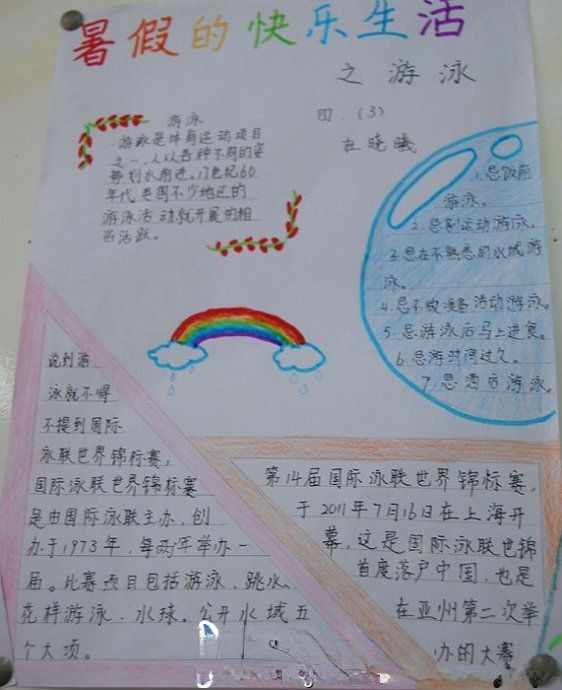 暑假的快乐生活
之游泳
四.(3)
杜晓曦
游泳
游泳是体育运动项目
之一,人以各种不同的姿
势划水前进。17世纪60
年代英国不少地区的
游泳活动就开展的相
当活跃。
1.忌饭前
游泳。
2.忌剧运动游泳。
3.忌在不熟悉的水域游
泳。
4.忌不做准备活动游泳。
5.忌游泳后马上进食。
6.忌游时间过久。
7.忌酒后游泳。
说到游
泳就不得
不提到国际
泳联世界锦标赛,
国际泳联世界锦标赛
是由国际泳联主办,创
办于1973年,每两年举办一
届。比赛项目包括游泳、跳水、
花样游泳、水球。公开水域五
个大项。
第14届国际泳联世界锦标赛,
于2011年7月16日在上海开
幕,这是国际泳联世锦
首度落户中国,也是
在亚州第二次举
办的大赛